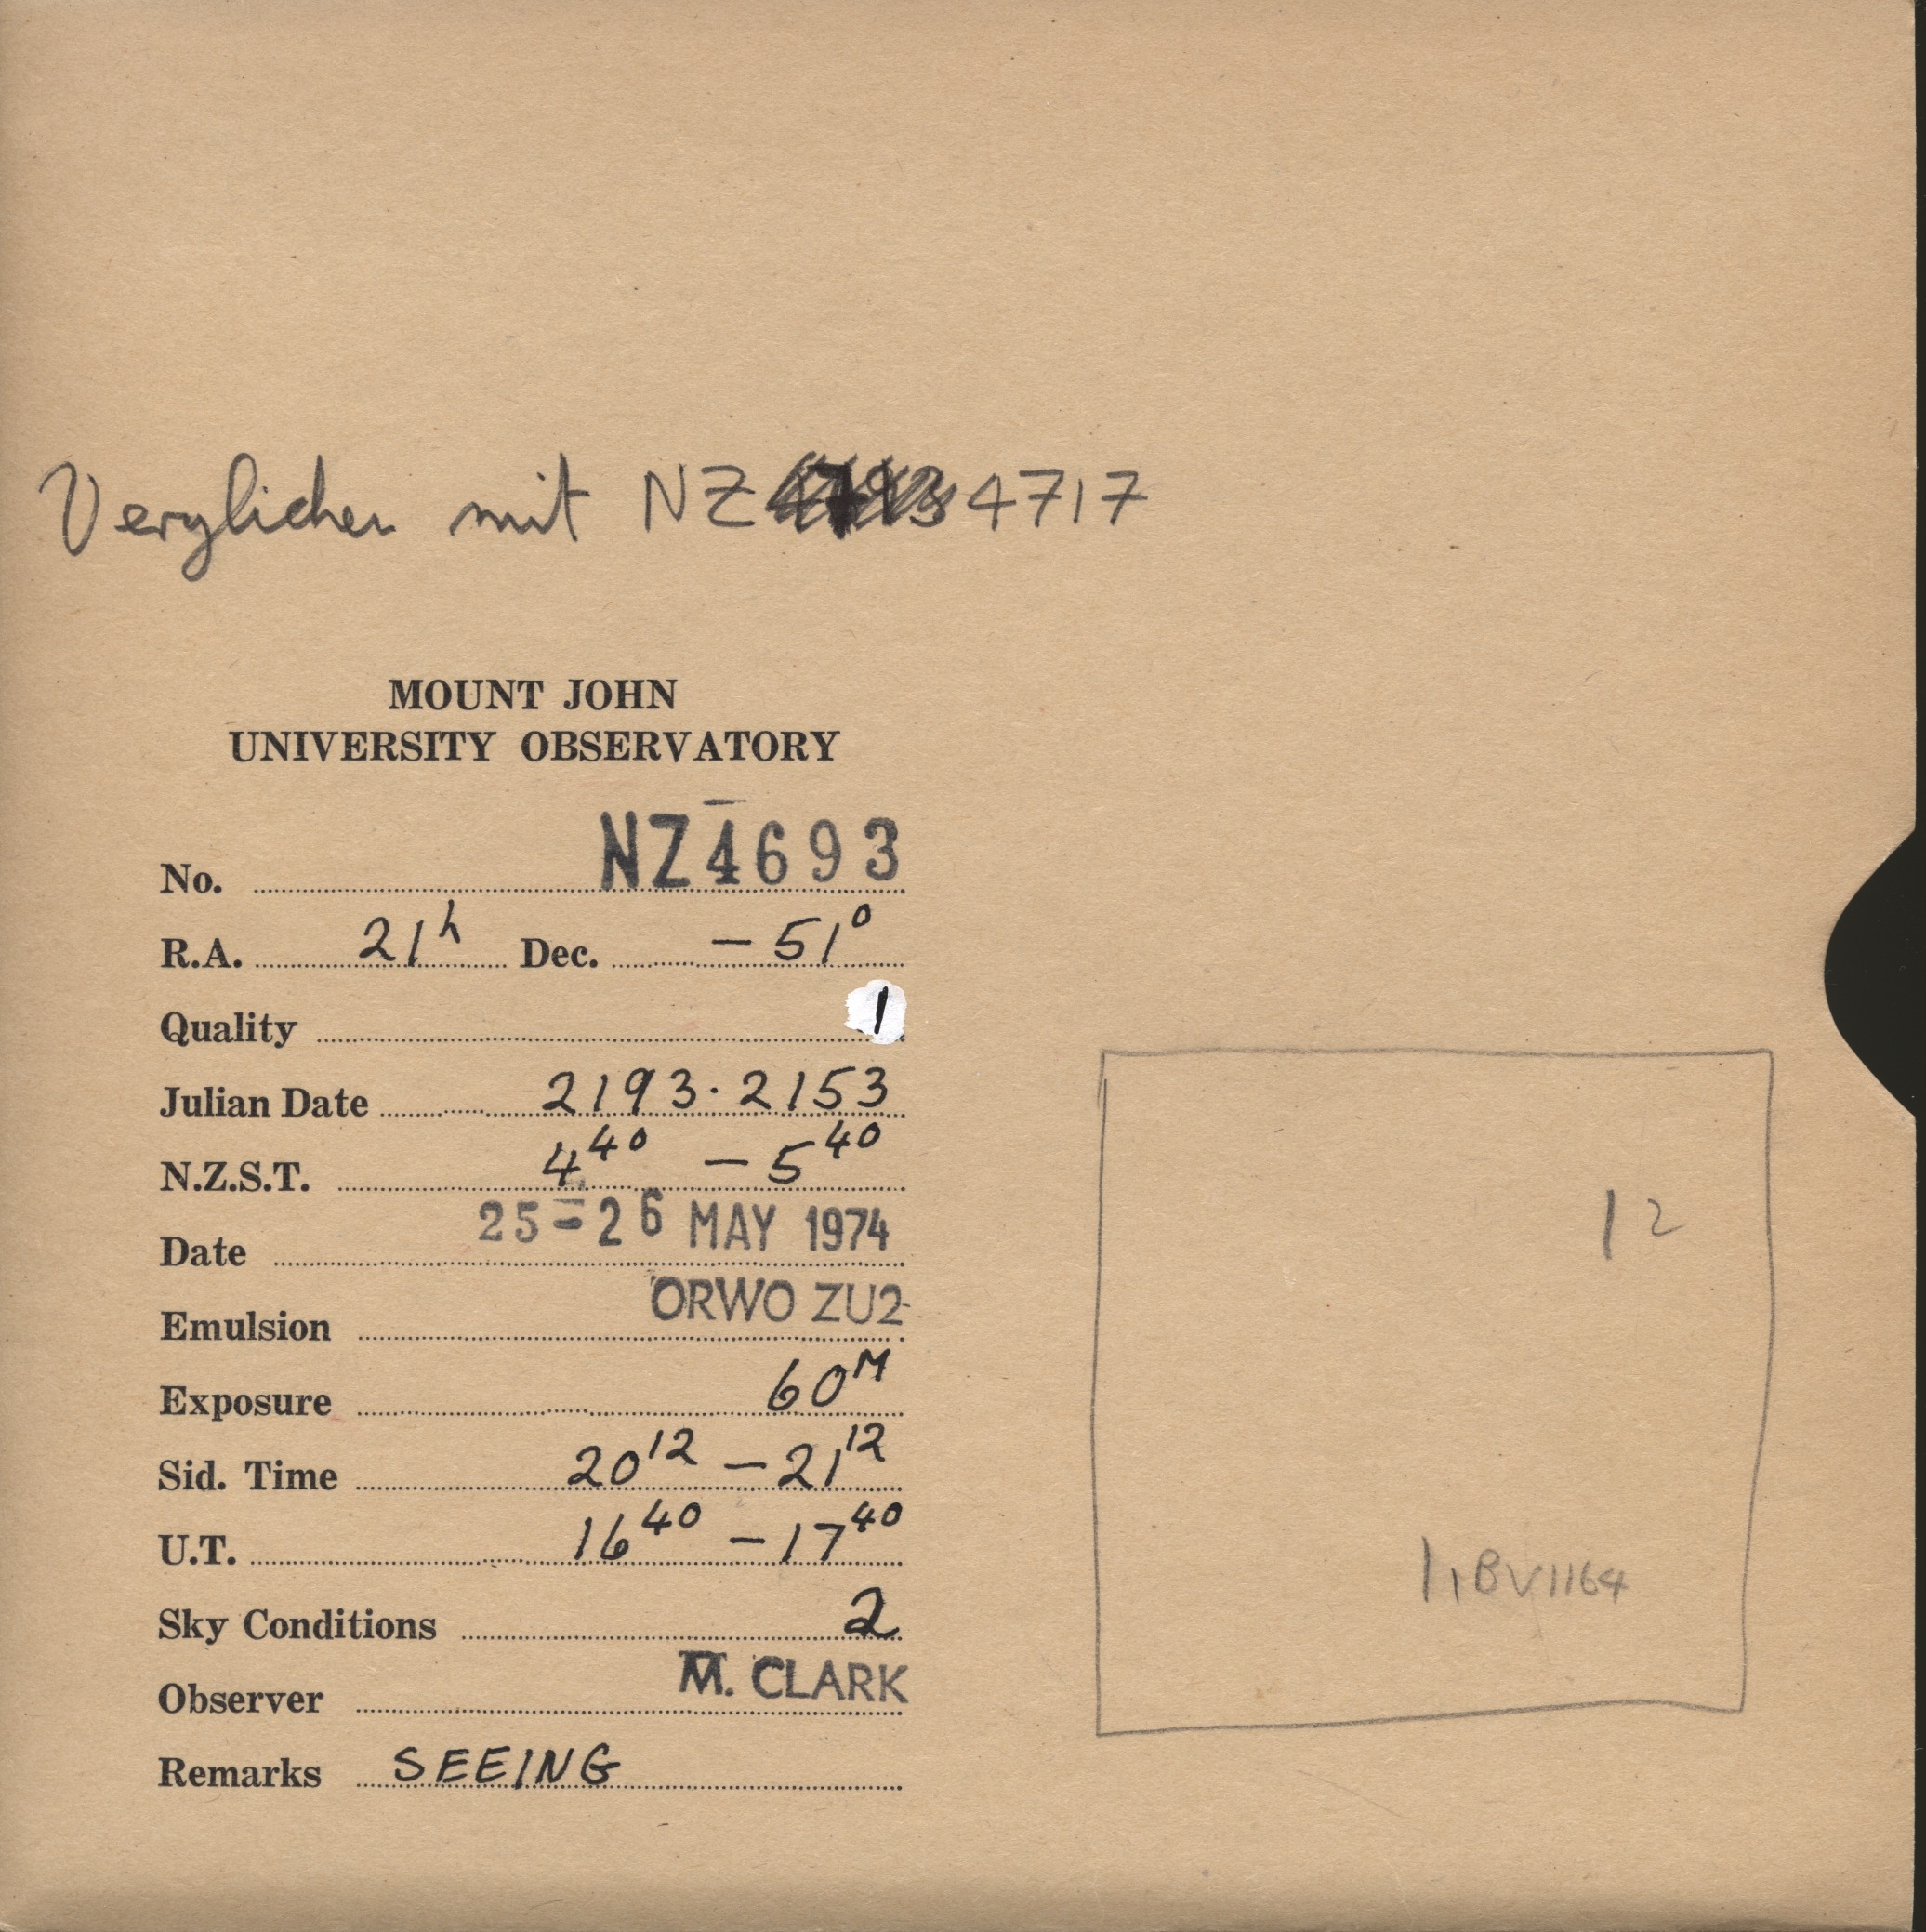 Verglichen mit NZ 4717
MOUNT JOHN
UNIVERSITY OBSERVATORY
No. NZ4693
R.A. 21h Dec. -51°
Quality 1
Julian Date 2193.2153
N.Z.S.T. 4 40 - 5 40
Date 25-26 MAY 1974
Emulsion ORWO ZU2
Exposure 60M
Sid. Time 20 12 - 21 12
U.T. 16 40 - 17 40
Sky Conditions 2
Observer M. CLARK
Remarks SEEING
| 2
|, BV1164